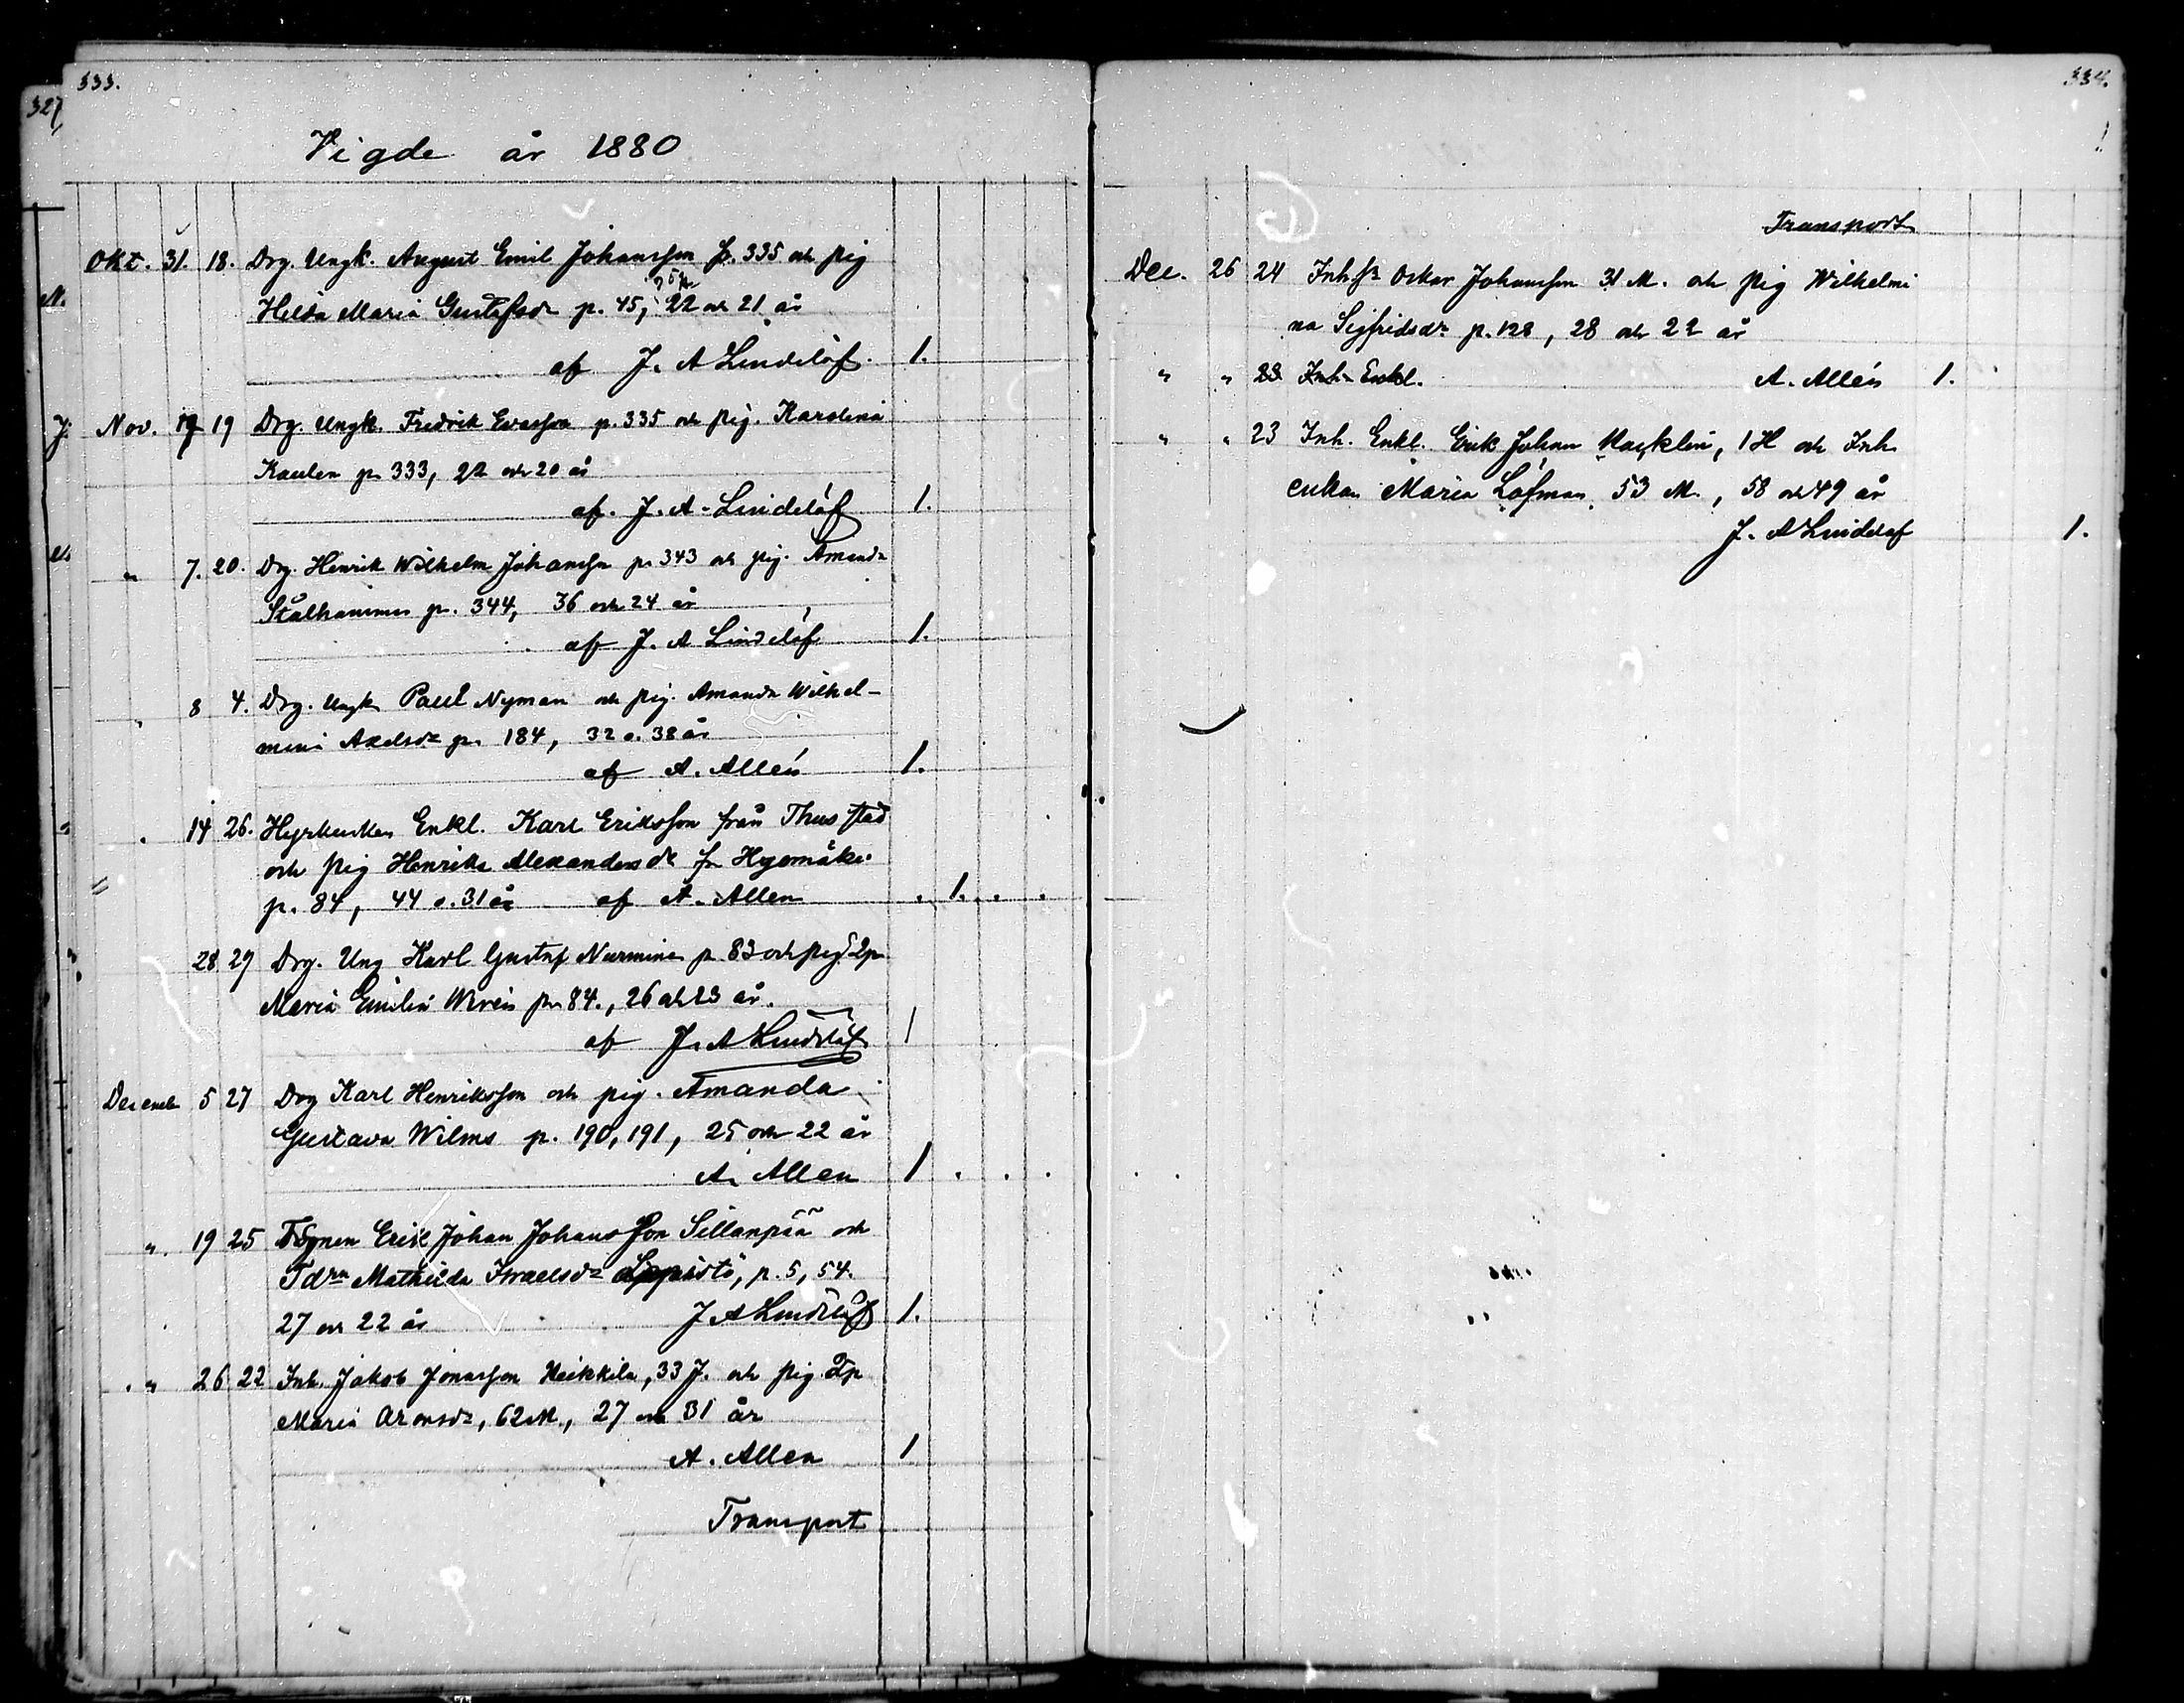 333.
327,
Vigde år 1880
Okt. 31. 18. Drg. Ungk. August Emil Johansson p. 335 och pig
M. Hilda Maria Gustafsdr p. 45, 22 och 21 år
af J. A Lindelöf. 1.
J. Nov. 19 Drg. Ungk. Fredrik Evasson p. 335 och pig. Karolina
p. 333, 22 och 20 år
af. J. A. Lindelöf 1.
" 7. 20. Drg. Henrik Wilhelm Johansson p. 343 och pig. Amanda
Stålhammer p. 344, 36 och 24 år
af J. A Lindelöf 1.
" 8 4. Drg. Ungk Paul Nyman och pig. Amanda Wilhel-
mina Axelsdr p. 184, 32 o. 38 år
af A. Allén 1.
" 14 26. Enkl. Karl Eriksson från
och pig Henrika Alexandersdr
p. 84, 44 o. 31 år af A. Allen . 1. . .
28 29 Drg. Ung Karl Gustaf Nurminen p 83 och pig
Maria Emilia p. 84., 26 och 23 år.
af J. A Lindelöf 1
Decemb 5 27 Drg Karl Henriksson och pig. Amanda
Gustava Wilms p. 190, 191, 25 och 22 år
A. Allen 1 . . .
" 19 25 Erik Johan Johansson Sillanpää och
Tdrn Mathilda Israelsdr Leppistö, p. 5, 54.
27 och 22 år J A Lindelöf 1.
" 26 22 Inh. Jakob Jonasson Heikkilä, 33 J. och pig
Maria Aronsdr, 62 M., 27 och 31 år
A. Allen 1
Transport
334.
Transport
Dec. 26 24 Inh. Oskar Johansson 31 M. och pig Wilhelmi
na Sigfridsdr p. 128, 28 och 22 år
" " 23 Inh. Enkl. A. Allén 1.
" " 23 Inh. Enkl. Erik Johan Macklin, 1 H och Inh.
enkan Maria Löfman 53 M., 58 och 49 år
J. A Lindelöf 1.